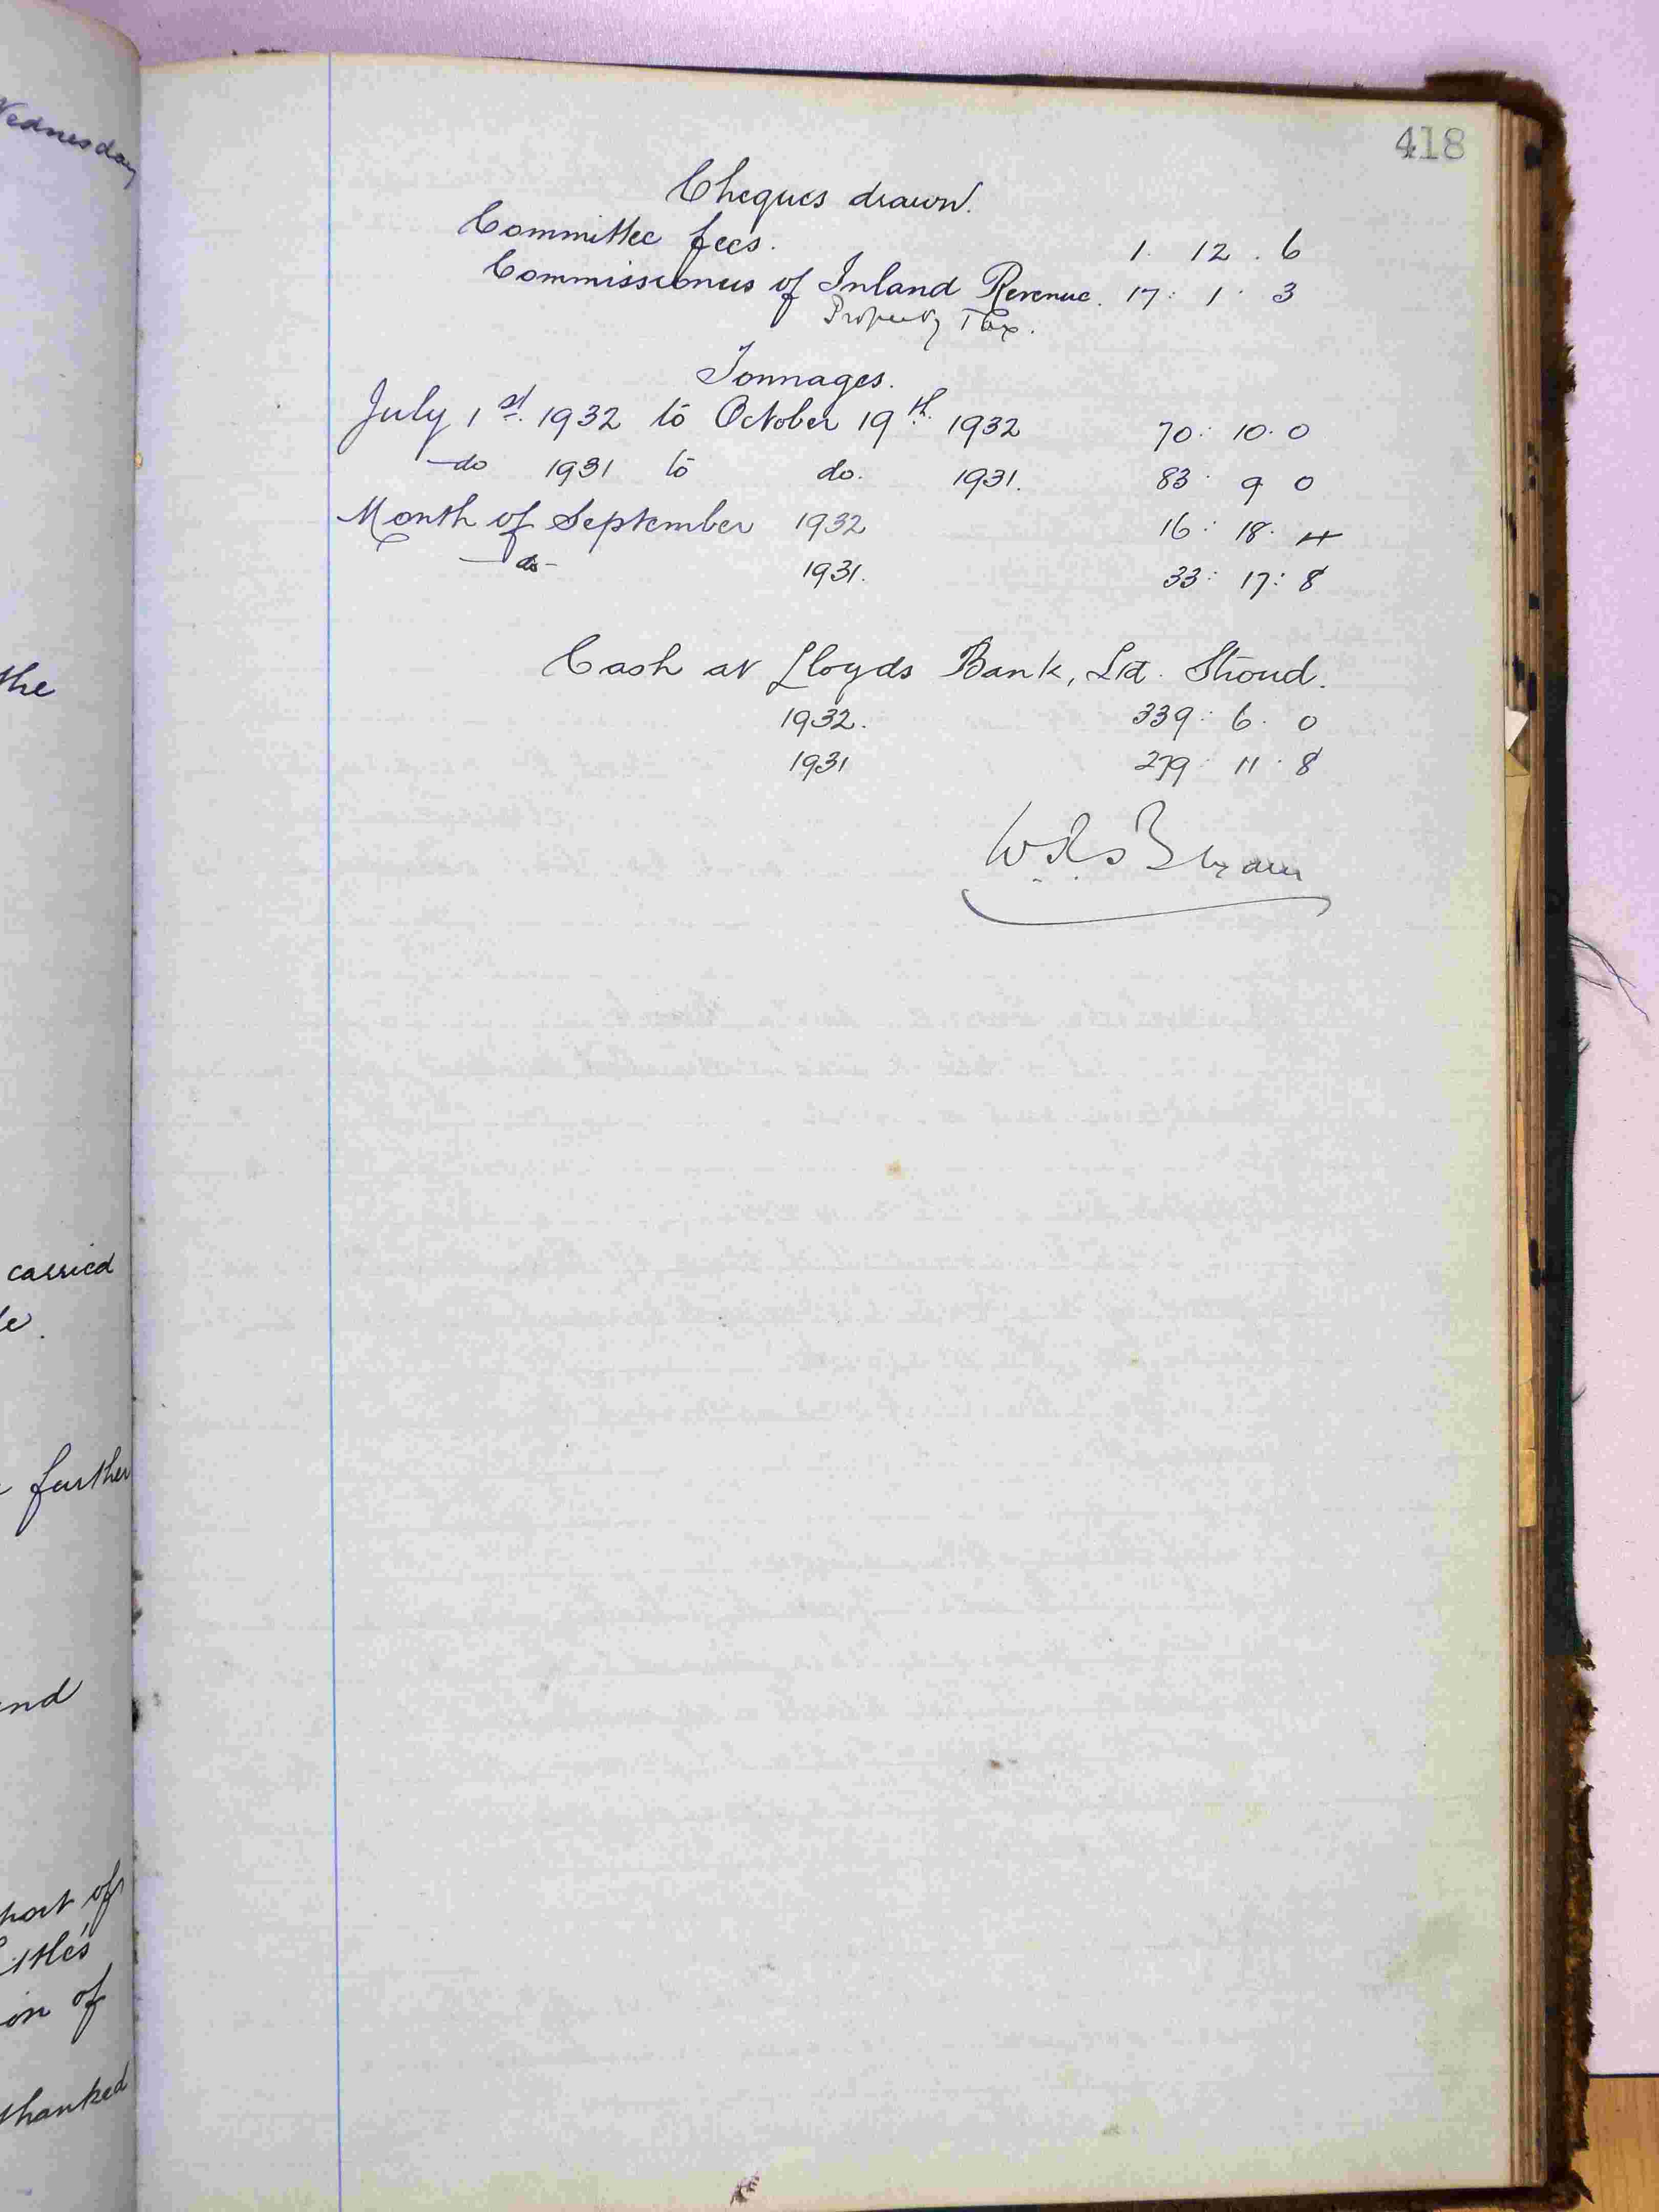 Wednesday
the
carried
further
and
of
on of
thanked
418
Cheques drawn.
Committee fees. 1. 12. 6
Commissioners of Inland Revenue. 17: 1. 3
Property Tax.
Tonnages.
July 1st. 1932 to October 19th. 1932 70: 10. 0
do 1931 to do. 1931. 83. 9 0
Month of September 1932 16: 18. 4
do 1931. 33: 17: 8
Cash at Lloyds Bank, Ltd. Stroud.
1932. 339: 6. 0
1931 279: 11. 8